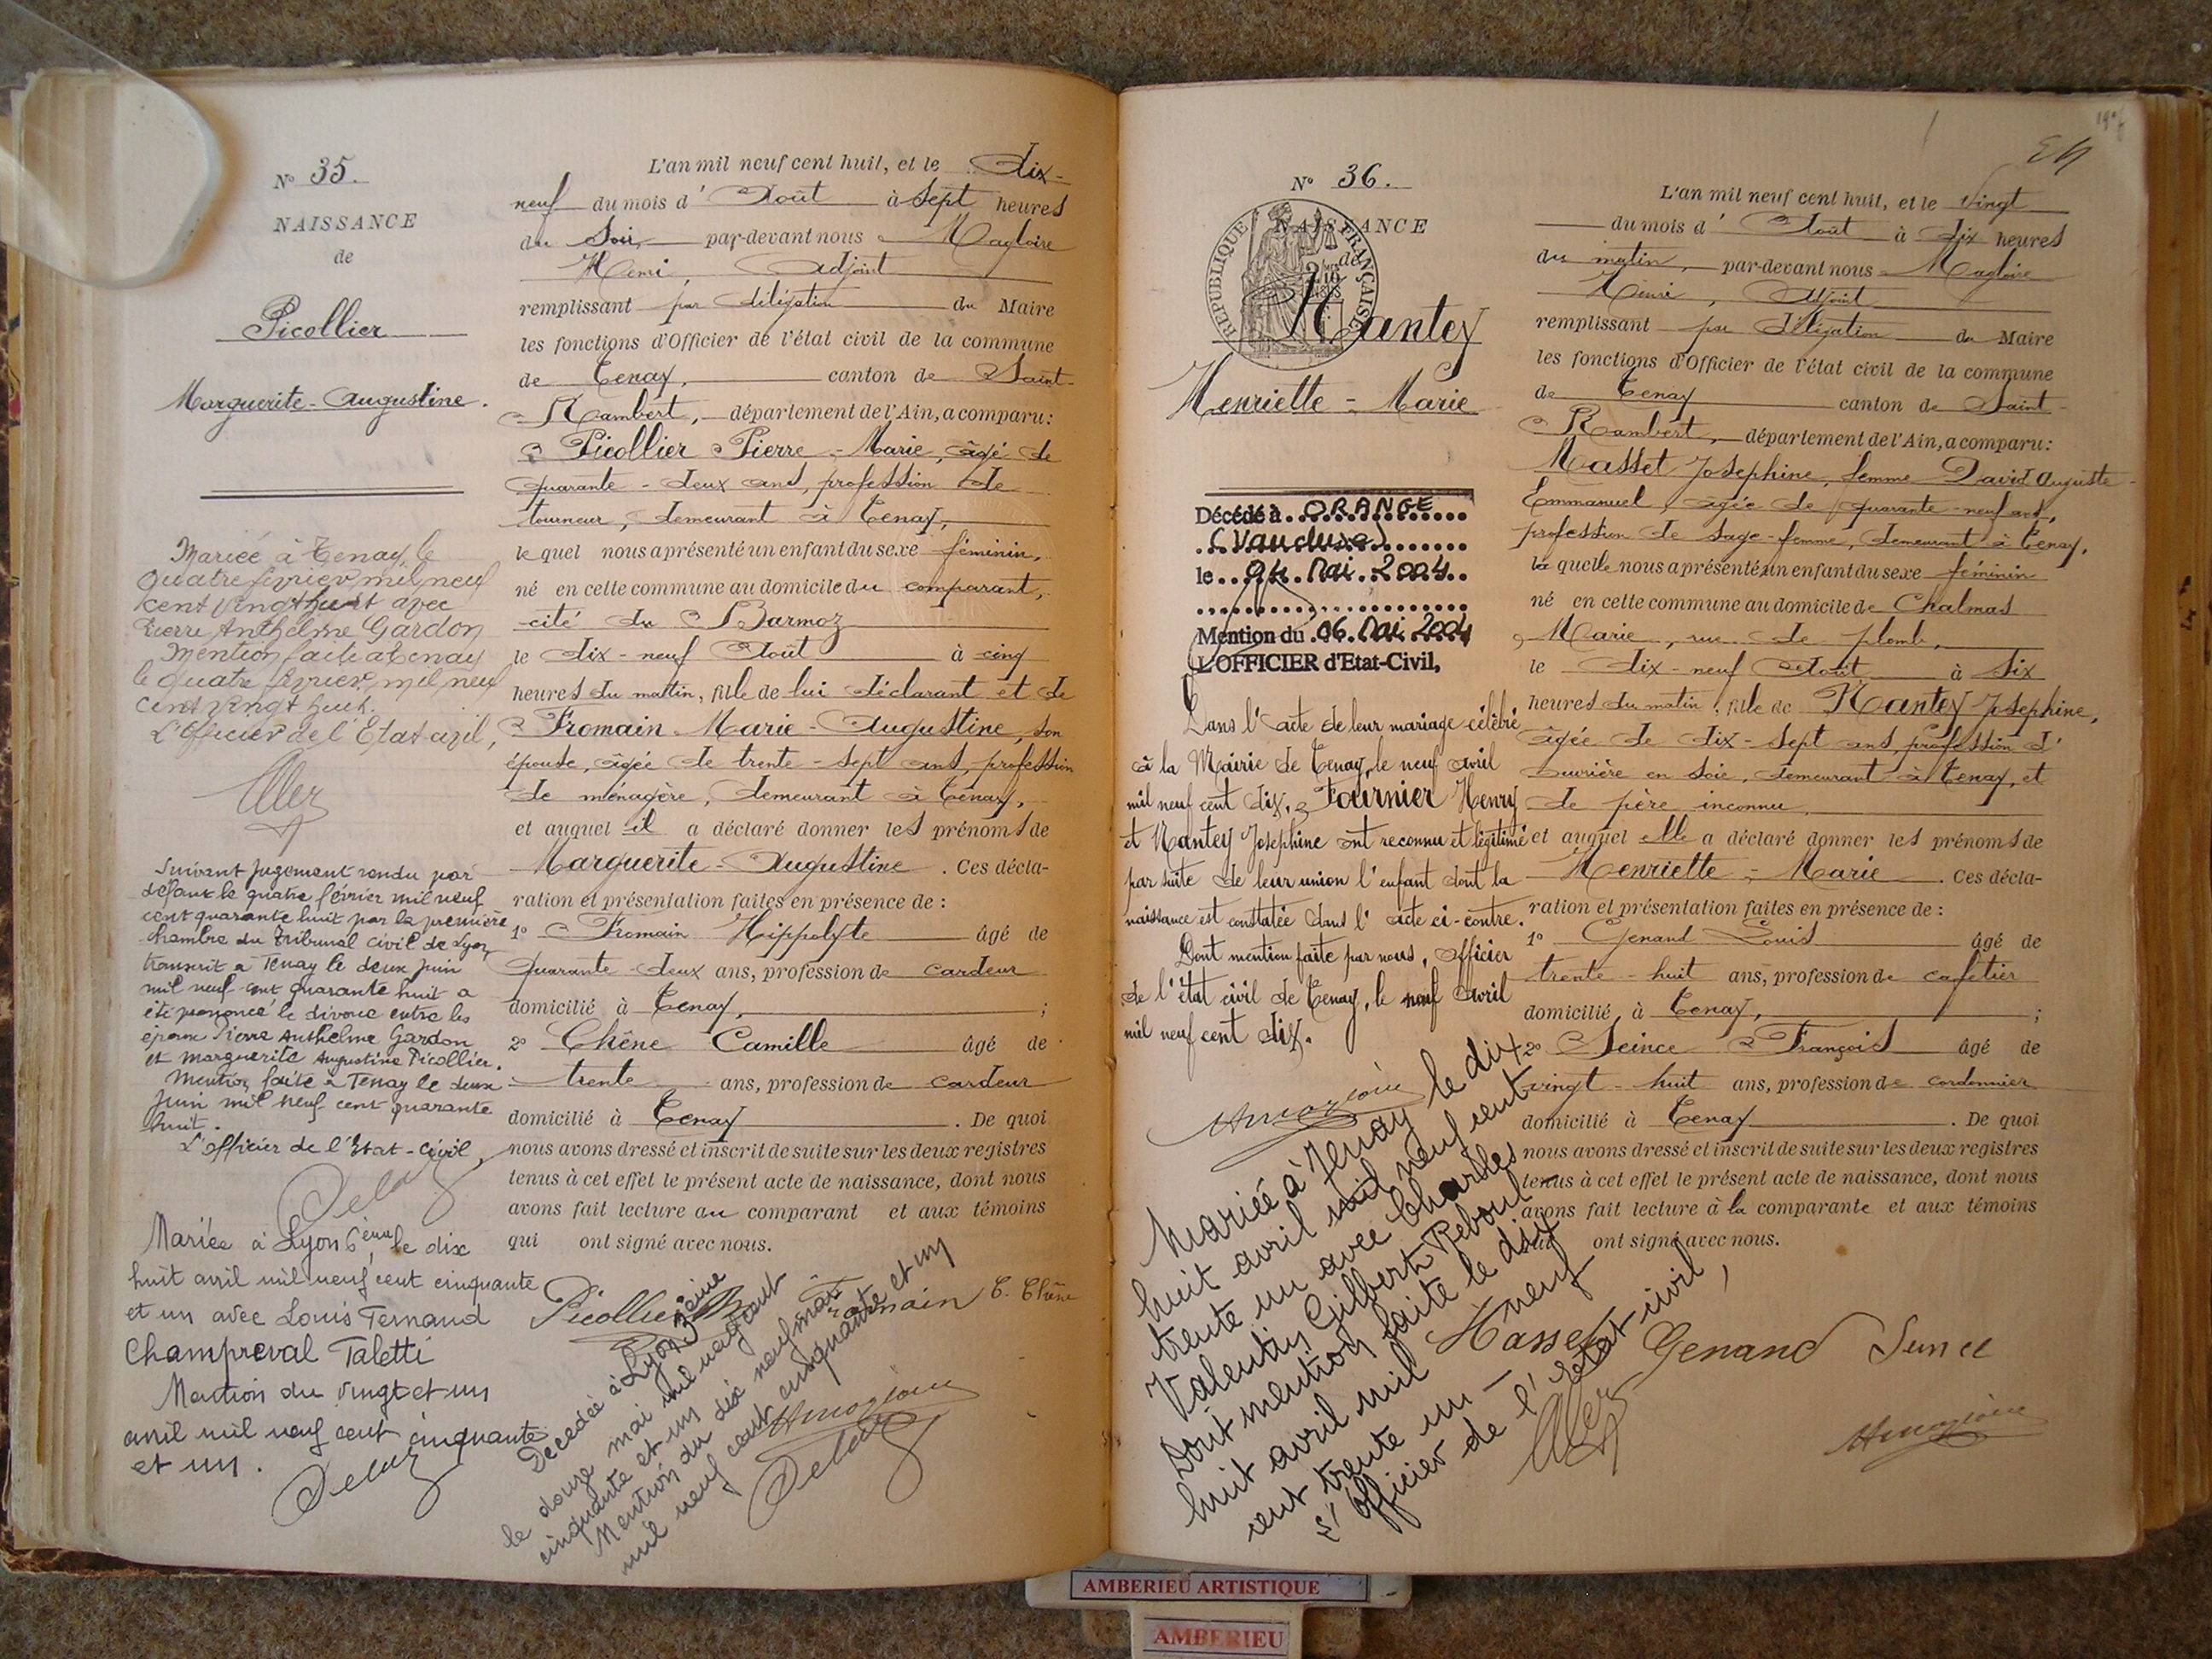 N° 35.
NAISSANCE
de
Picollier
Marguerite-Augustine.
Mariée à Tenay, le
quatre février mil neuf
cent vingt huit avec
Pierre Anthelme Gardon
Mention faite à Tenay
le quatre février mil neuf
cent vingt huit.
L'Officier de l'Etat-civil,
Suivant jugement rendu par
défaut le quatre février mil neuf
cent quarante huit par la première
chambre du Tribunal civil de Lyon,
transcrit à Tenay le deux juin
mil neuf cent quarante huit a
été prononcé le divorce entre les
époux Pierre Anthelme Gardon
et Marguerite Augustine Picollier.
Mention faite à Tenay le deux
juin mil neuf cent quarante
huit.
L'officier de l'Etat-Civil,
Mariée à Lyon 6ème, le dix
huit avril mil neuf cent cinquante
et un avec Louis Fernand
Champreval Taletti
Mention du vingt et un
avril mil neuf cent cinquante
et un.
L'an mil neuf cent huit, et le dix-
neuf du mois d'Août à Sept heures
du Soir, par-devant nous Magloire
Henri, Adjoint
remplissant par délégation du Maire
les fonctions d'Officier de l'état civil de la commune
de Tenay, canton de Saint-
Rambert, département de l'Ain, a comparu:
Picollier Pierre-Marie, âgé de
quarante-deux ans, profession de
tourneur, demeurant à Tenay,
le quel nous a présenté un enfant du sexe féminin,
né en cette commune au domicile du comparant,
cité du Barmoz
le dix-neuf Août à cinq
heures du matin, fille de lui déclarant et de
Fromain Marie-Augustine, son
épouse, âgée de trente-sept ans, profession
de ménagère, demeurant à Tenay,
et auquel il a déclaré donner les prénoms de
Marguerite-Augustine. Ces décla-
ration et présentation faites en présence de :
1° Fromain Hippolyte âgé de
quarante-deux ans, profession de cardeur
domicilié à Tenay, ;
2° Chêne Camille âgé de
trente ans, profession de cardeur
domicilié à Tenay. De quoi
nous avons dressé et inscrit de suite sur les deux registres
tenus à cet effet le présent acte de naissance, dont nous
avons fait lecture au comparant et aux témoins
qui ont signé avec nous.
Picollier Fromain C. Chêne
Décédée à Lyon 3ème
le douze mai mil neuf cent
cinquante et un
Mention du dix neuf mai
mil neuf cent cinquante et un
N° 36.
NAISSANCE
de
RÉPUBLIQUE FRANÇAISE
Nantey
Henriette-Marie
Décédé à ORANGE
(Vaucluse)
le 04 Mai 2004
Mention du 06 Mai 2004
L'OFFICIER d'Etat-Civil,
Dans l'acte de leur mariage célébré
à la Mairie de Tenay, le neuf avril
mil neuf cent dix, Fournier Henry
et Nantey Josephine ont reconnu et légitimé
par suite de leur union l'enfant dont la
naissance est constatée dans l'acte ci-contre.
Dont mention faite par nous, officier
de l'état civil de Tenay, le neuf avril
mil neuf cent dix.
Mariée à Tenay le dix
huit avril mil neuf cent
trente un avec Charles
Valentin Gilbert Reboul
Dont mention faite le dix
huit avril mil neuf
cent trente un
L'officier de l'état-civil,
L'an mil neuf cent huit, et le vingt
du mois d'Août à dix heures
du matin, par-devant nous Magloire
Henri, Adjoint
remplissant par délégation du Maire
les fonctions d'Officier de l'état civil de la commune
de Tenay canton de Saint-
Rambert, département de l'Ain, a comparu:
Masset Josephine, femme David Auguste-
Emmanuel, âgée de quarante-neuf ans,
profession de sage-femme, demeurant à Tenay,
la quelle nous a présenté un enfant du sexe féminin
né en cette commune au domicile de Chalmas
Marie, rue de plomb,
le dix-neuf Août à six
heures du matin, fille de Nantey Josephine,
âgée de dix-sept ans, profession d'
ouvrière en soie, demeurant à Tenay, et
de père inconnu
et auquel elle a déclaré donner les prénoms de
Henriette-Marie. Ces décla-
ration et présentation faites en présence de :
1° Genand Louis âgé de
trente-huit ans, profession de cafetier
domicilié à Tenay, ;
2° Seince François âgé de
vingt-huit ans, profession de cordonnier
domicilié à Tenay. De quoi
nous avons dressé et inscrit de suite sur les deux registres
tenus à cet effet le présent acte de naissance, dont nous
avons fait lecture à la comparante et aux témoins
qui ont signé avec nous.
Masset Genand
AMBERIEU ARTISTIQUE
AMBERIEU